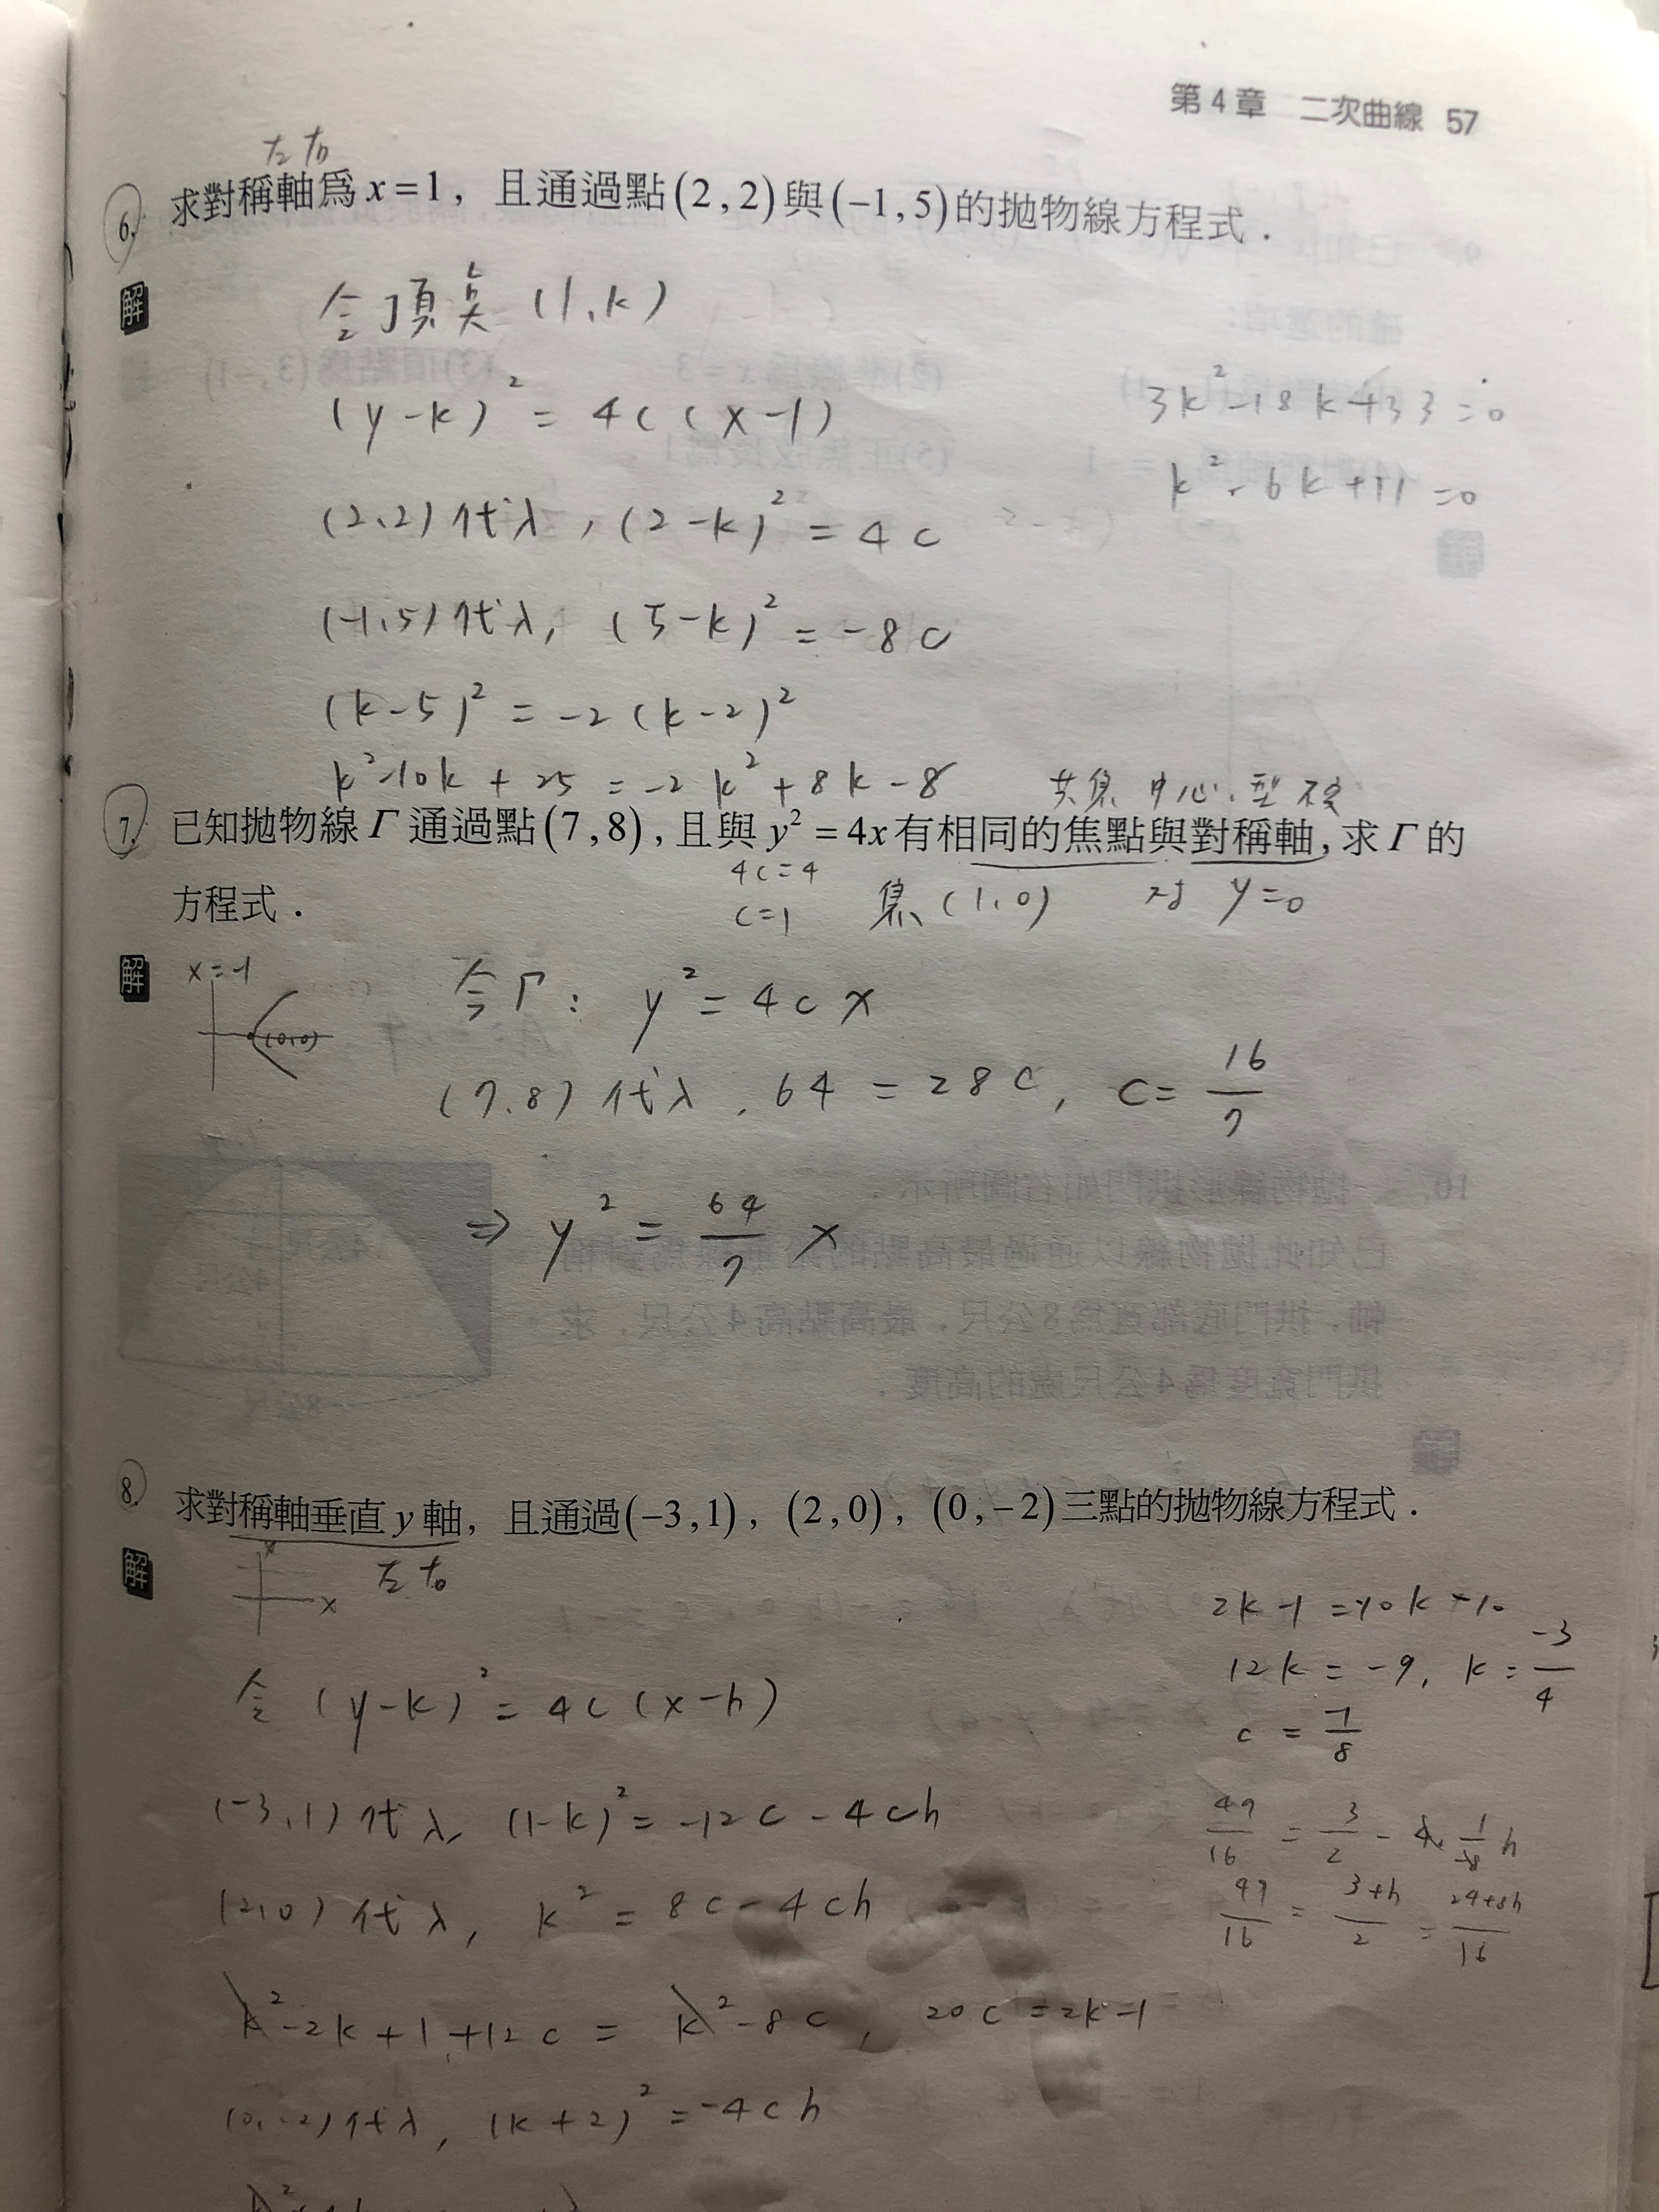 第4章 二次曲線 57
左右
6. 求對稱軸為 x=1, 且通過點(2,2)與(-1,5)的拋物線方程式.
解
令頂點 (1,k)
(y-k)² = 4c(x-1)
3k²-18k+33=0
k²-6k+11=0
(2,2)代入, (2-k)² = 4c
(-1,5)代入, (5-k)² = -8c
(k-5)² = -2(k-2)²
k²-10k+25 = -2k²+8k-8
共焦 中心、型不变
7. 已知拋物線Γ通過點(7,8), 且與 y²=4x 有相同的焦點與對稱軸, 求Γ的
4c=4
方程式.
c=1 焦(1,0) 对 y=0
解
x=-1
(0,0)
令Γ: y²=4cx
(7,8)代入, 64=28c, c=16/7
⇒ y² = 64/7 x
8. 求對稱軸垂直 y 軸, 且通過(-3,1), (2,0), (0,-2)三點的拋物線方程式.
解
x
左右
令 (y-k)² = 4c(x-h)
12k=-9, k=-3/4
(-3,1)代入, (1-k)² = -12c-4ch
(2,0)代入, k² = 8c-4ch
49/16 = (3+h)/2 = (24+8h)/16
k²-2k+1+12c = k²-8c, 20c=2k-1
(0,-2)代入, (k+2)² = -4ch